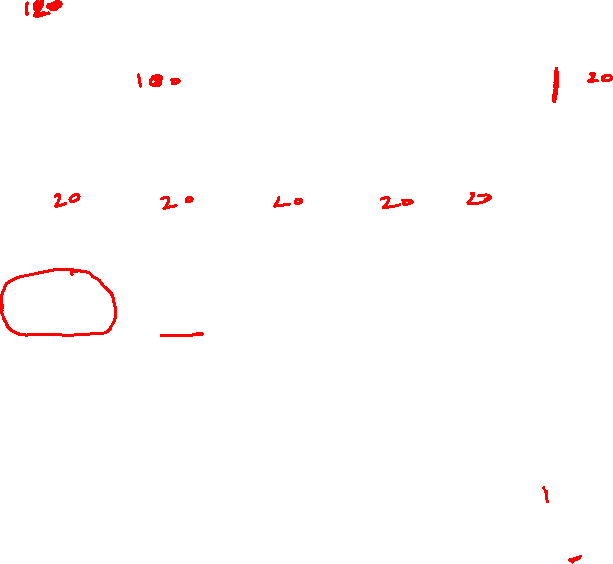 120
100 | 20
20 20 20 20 20